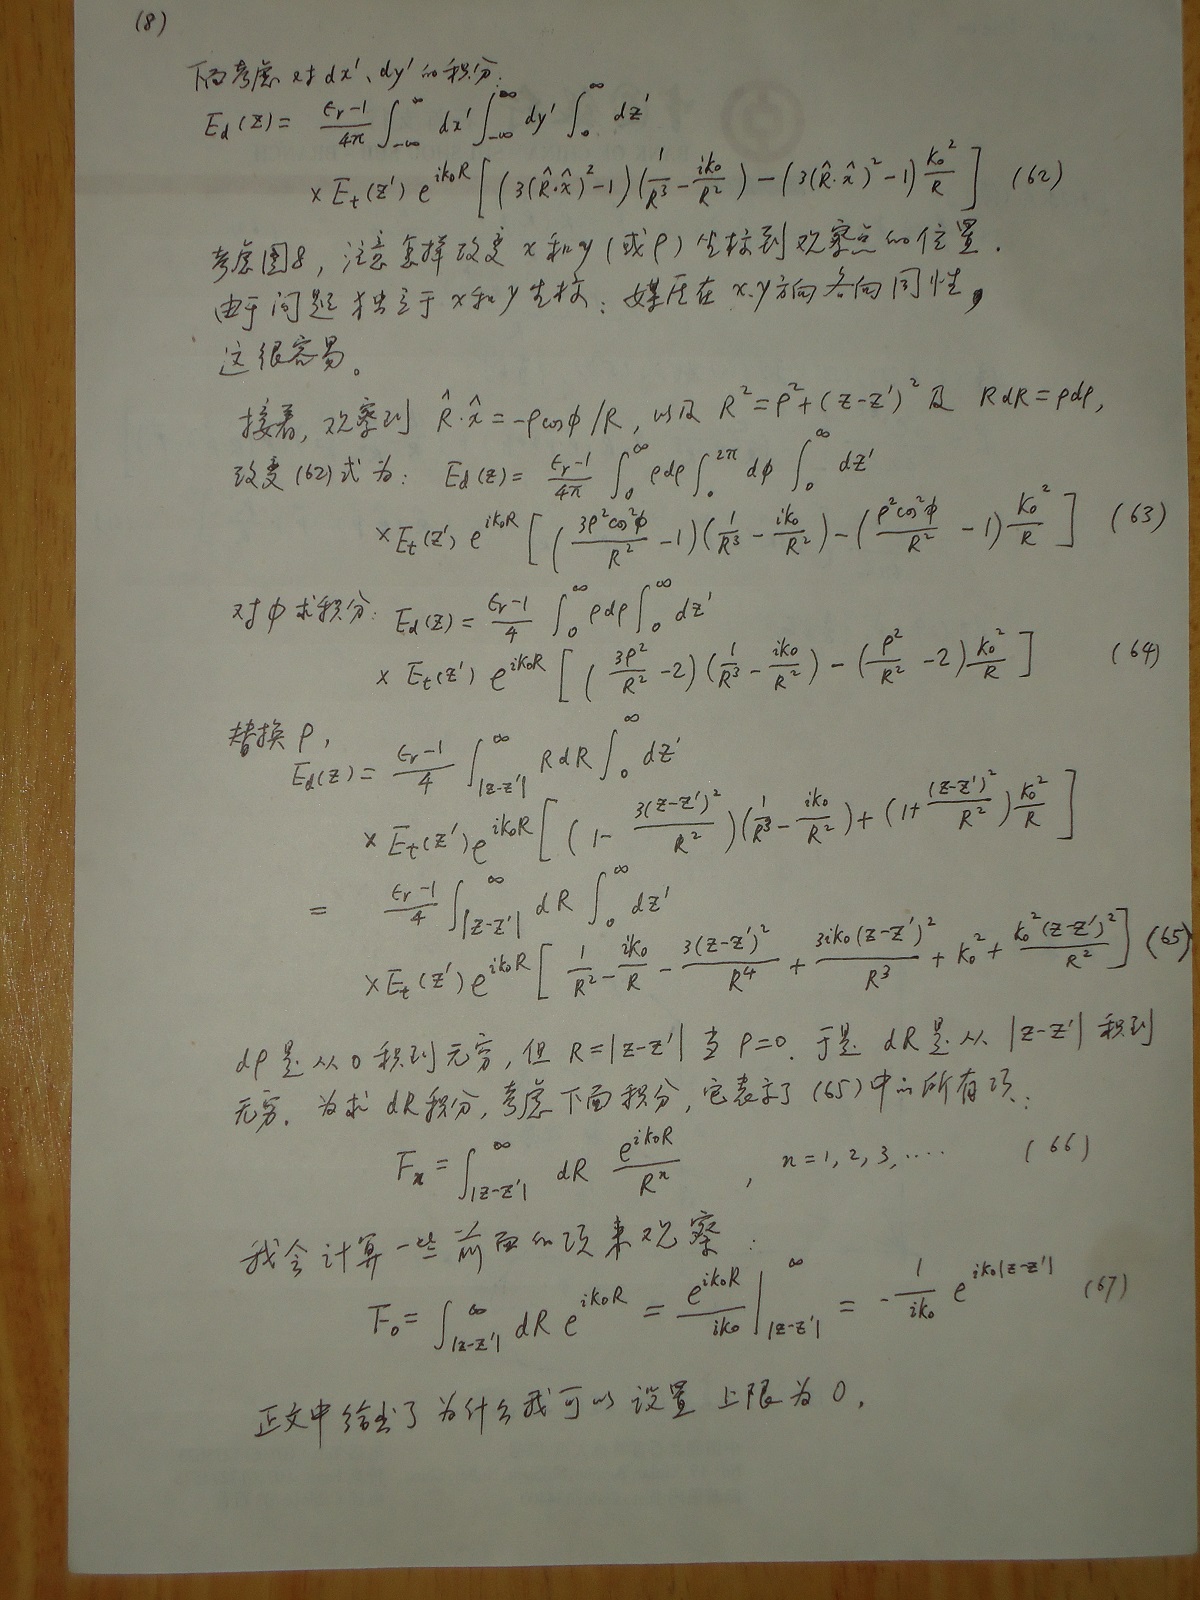 (8)
下面考虑对dx'、dy'的积分:
E_d(z) = \frac{ε_r-1}{4π} ∫_{-∞}^{∞} dx' ∫_{-∞}^{∞} dy' ∫_0^{∞} dz'
× E_t(z') e^{ik_0R} [ (3(\hat{R}·\hat{x})^2-1)(\frac{1}{R^3} - \frac{ik_0}{R^2}) - (3(\hat{R}·\hat{x})^2-1)\frac{k_0^2}{R} ] (62)
考虑图8,注意怎样改变x和y(或ρ)坐标到观察点的位置.
由于问题独立于x和y坐标:媒质在x.y方向各向同性,
这很容易。
接着,观察到 \hat{R}·\hat{x} = -ρcosφ/R, 以及 R^2=ρ^2+(z-z')^2 及 RdR=ρdρ,
改变(62)式为: E_d(z) = \frac{ε_r-1}{4π} ∫_0^{∞} ρdρ ∫_0^{2π} dφ ∫_0^{∞} dz'
× E_t(z') e^{ik_0R} [ (\frac{3ρ^2cos^2φ}{R^2} -1)(\frac{1}{R^3} - \frac{ik_0}{R^2}) - (\frac{ρ^2cos^2φ}{R^2} -1)\frac{k_0^2}{R} ] (63)
对φ求积分: E_d(z) = \frac{ε_r-1}{4} ∫_0^{∞} ρdρ ∫_0^{∞} dz'
× E_t(z') e^{ik_0R} [ (\frac{3ρ^2}{R^2} -2)(\frac{1}{R^3} - \frac{ik_0}{R^2}) - (\frac{ρ^2}{R^2} -2)\frac{k_0^2}{R} ] (64)
替换ρ,
E_d(z) = \frac{ε_r-1}{4} ∫_{|z-z'|}^{∞} RdR ∫_0^{∞} dz'
× E_t(z') e^{ik_0R} [ (1- \frac{3(z-z')^2}{R^2})(\frac{1}{R^3} - \frac{ik_0}{R^2}) + (1+\frac{(z-z')^2}{R^2})\frac{k_0^2}{R} ]
= \frac{ε_r-1}{4} ∫_{|z-z'|}^{∞} dR ∫_0^{∞} dz'
× E_t(z') e^{ik_0R} [ \frac{1}{R^2} - \frac{ik_0}{R} - \frac{3(z-z')^2}{R^4} + \frac{3ik_0(z-z')^2}{R^3} + k_0^2 + \frac{k_0^2(z-z')^2}{R^2} ] (65)
dρ是从0积到无穷,但 R=|z-z'| 当 ρ=0. 于是 dR是从 |z-z'| 积到
无穷. 为求dR积分,考虑下面积分,它表示了(65)中的所有项:
F_n = ∫_{|z-z'|}^{∞} dR \frac{e^{ik_0R}}{R^n} , n=1,2,3,.... (66)
我会计算一些前面的项来观察:
F_0 = ∫_{|z-z'|}^{∞} dR e^{ik_0R} = \frac{e^{ik_0R}}{ik_0} |_{|z-z'|}^{∞} = -\frac{1}{ik_0} e^{ik_0|z-z'|} (67)
正文中给出了为什么我可以设置上限为0.